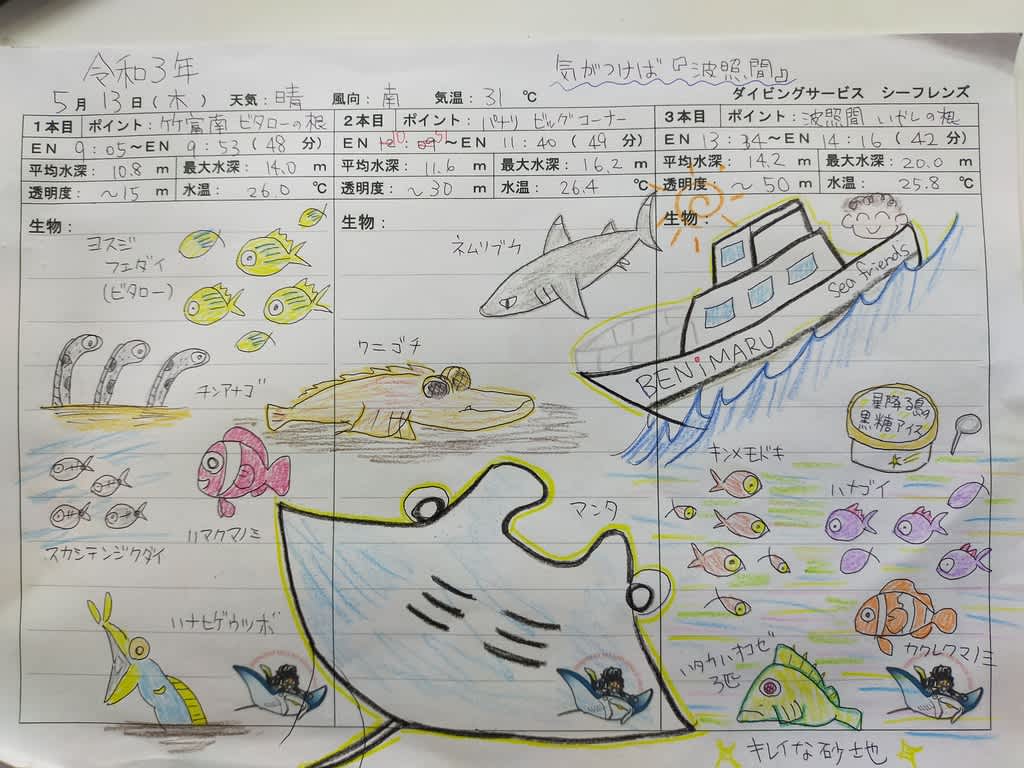 令和3年
気がつけば『波照間』
5月13日(木) 天気:晴 風向:南 気温:31 ℃ ダイビングサービス シーフレンズ
1本目 ポイント:竹富南 ビタローの根
EN 9:05~EN 9:53 (48 分)
平均水深: 10.8 m 最大水深: 14.0 m
透明度: ~15 m 水温: 26.0 ℃
生物:
ヨスジ
フエダイ
(ビタロー)
チンアナゴ
ハマクマノミ
スカシテンジクダイ
ハナヒゲウツボ
2本目 ポイント:パナリ ビッグコーナー
EN 10:51~EN 11:40 (49 分)
平均水深: 11.6 m 最大水深: 16.2 m
透明度: ~30 m 水温: 26.4 ℃
生物:
ネムリブカ
ワニゴチ
マンタ
3本目 ポイント:波照間 いやしの根
EN 13:34~EN 14:16 (42 分)
平均水深: 14.2 m 最大水深: 20.0 m
透明度: ~50 m 水温: 25.8 ℃
生物:
Sea friends
BENiMARU
星降る島の
黒糖アイス
キンメモドキ
ハナゴイ
カクレクマノミ
ハタタテハゼ
3匹
キレイな砂地